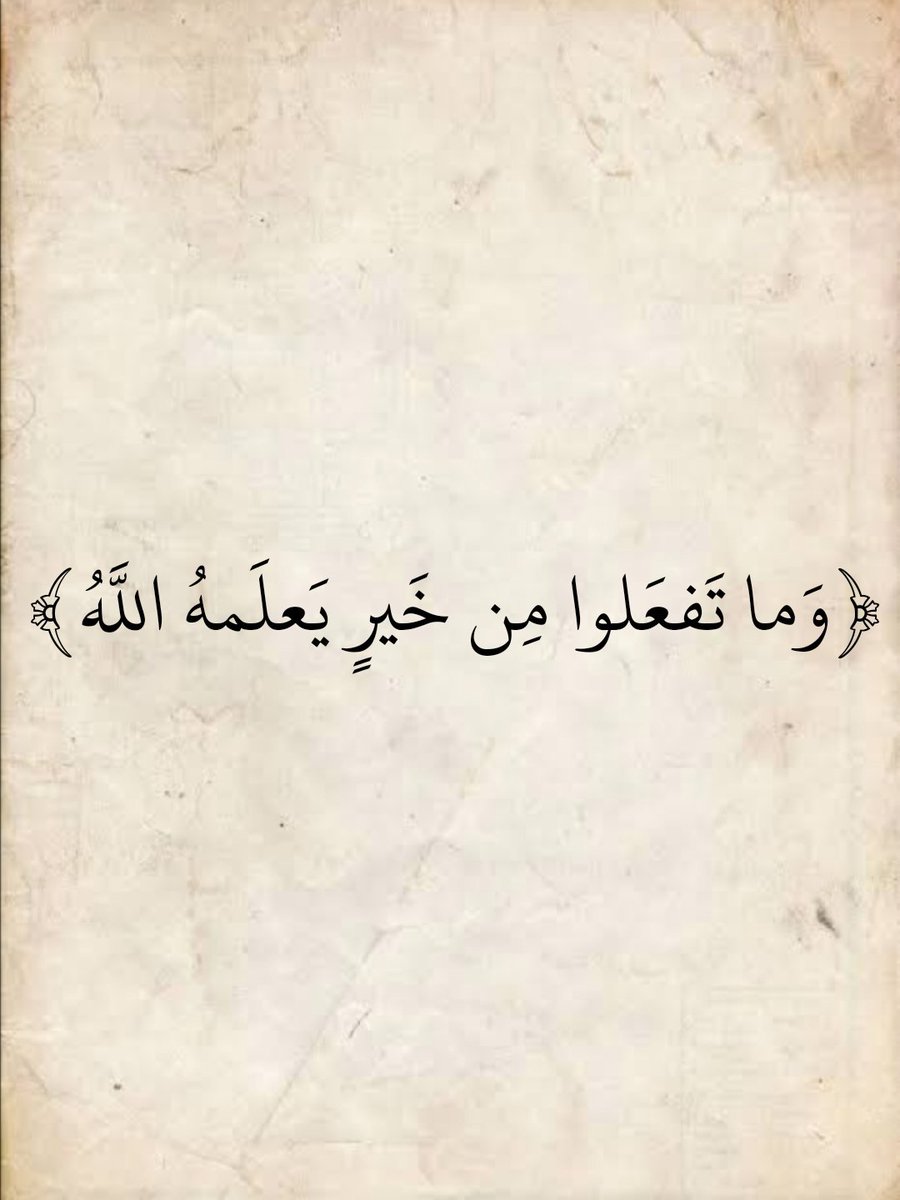 ﴿وَما تَفعَلوا مِن خَيرٍ يَعلَمهُ اللَّهُ﴾